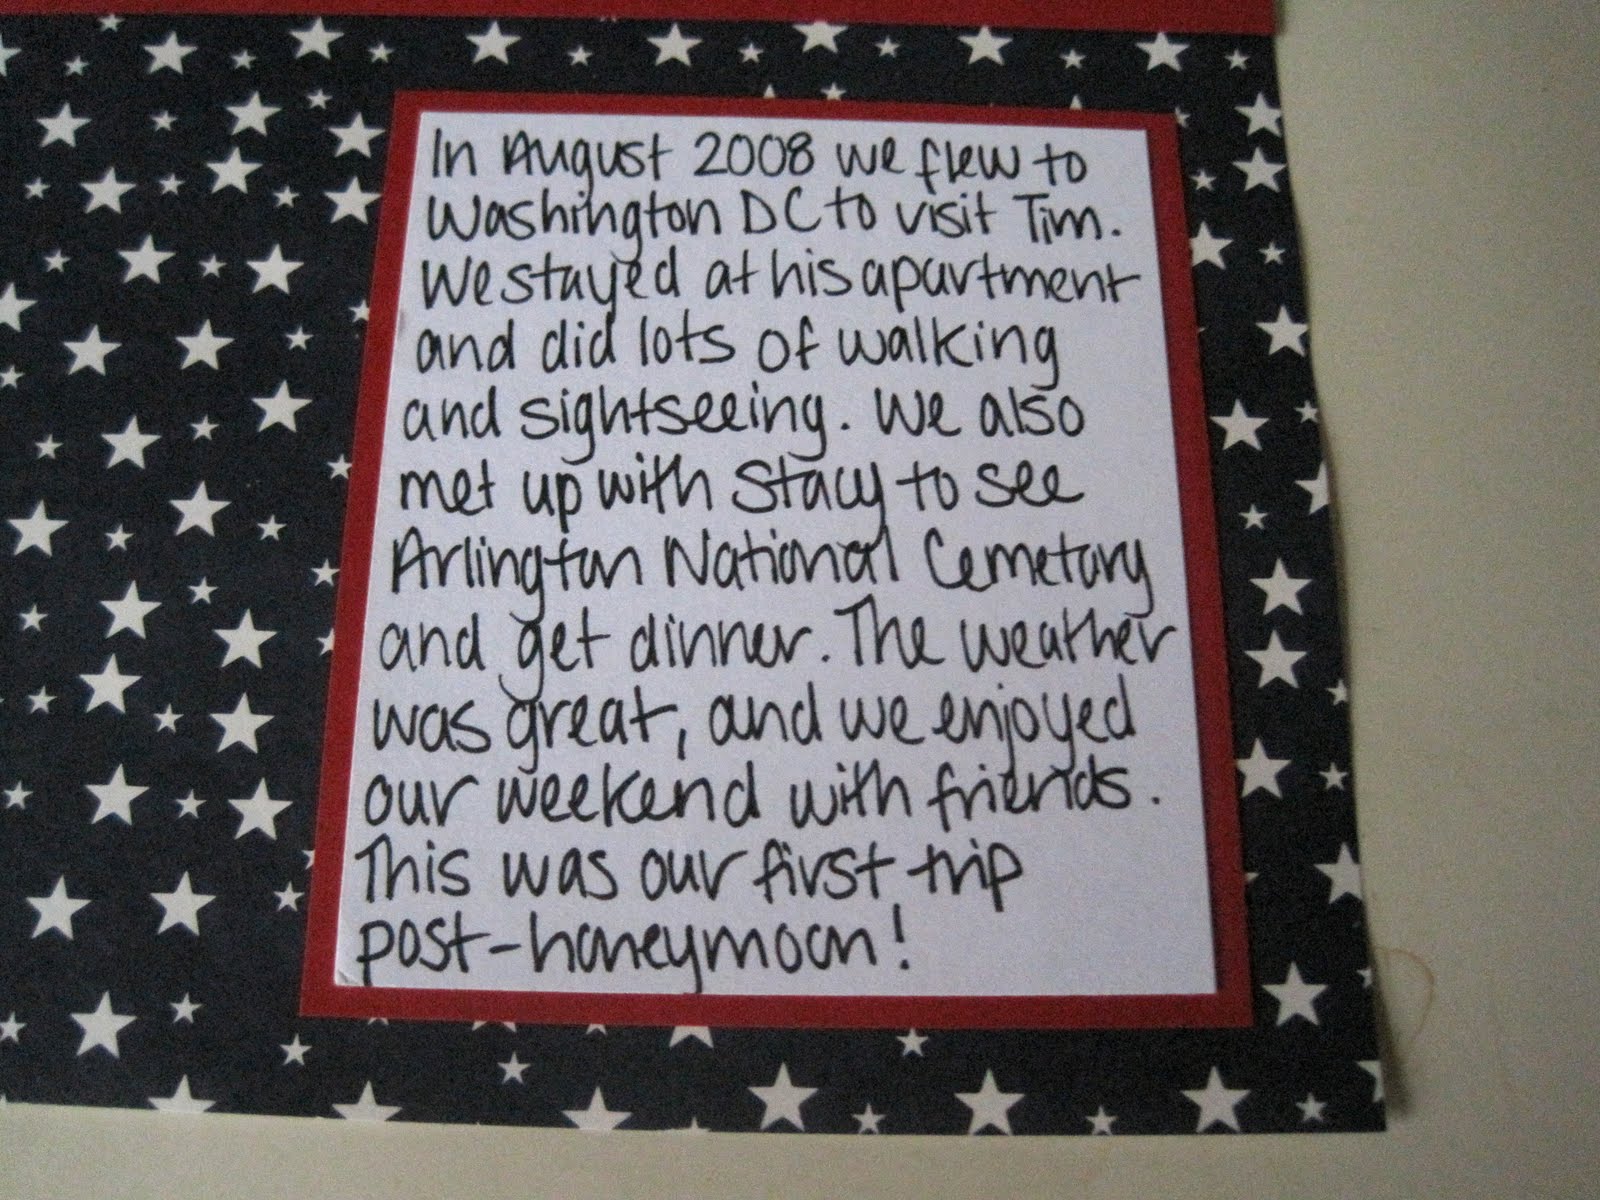 In August 2008 we flew to
Washington DC to visit Tim.
We stayed at his apartment
and did lots of walking
and sightseeing. We also
met up with Stacy to see
Arlington National Cemetary
and get dinner. The weather
was great, and we enjoyed
our weekend with friends.
This was our first trip
post-honeymoon!